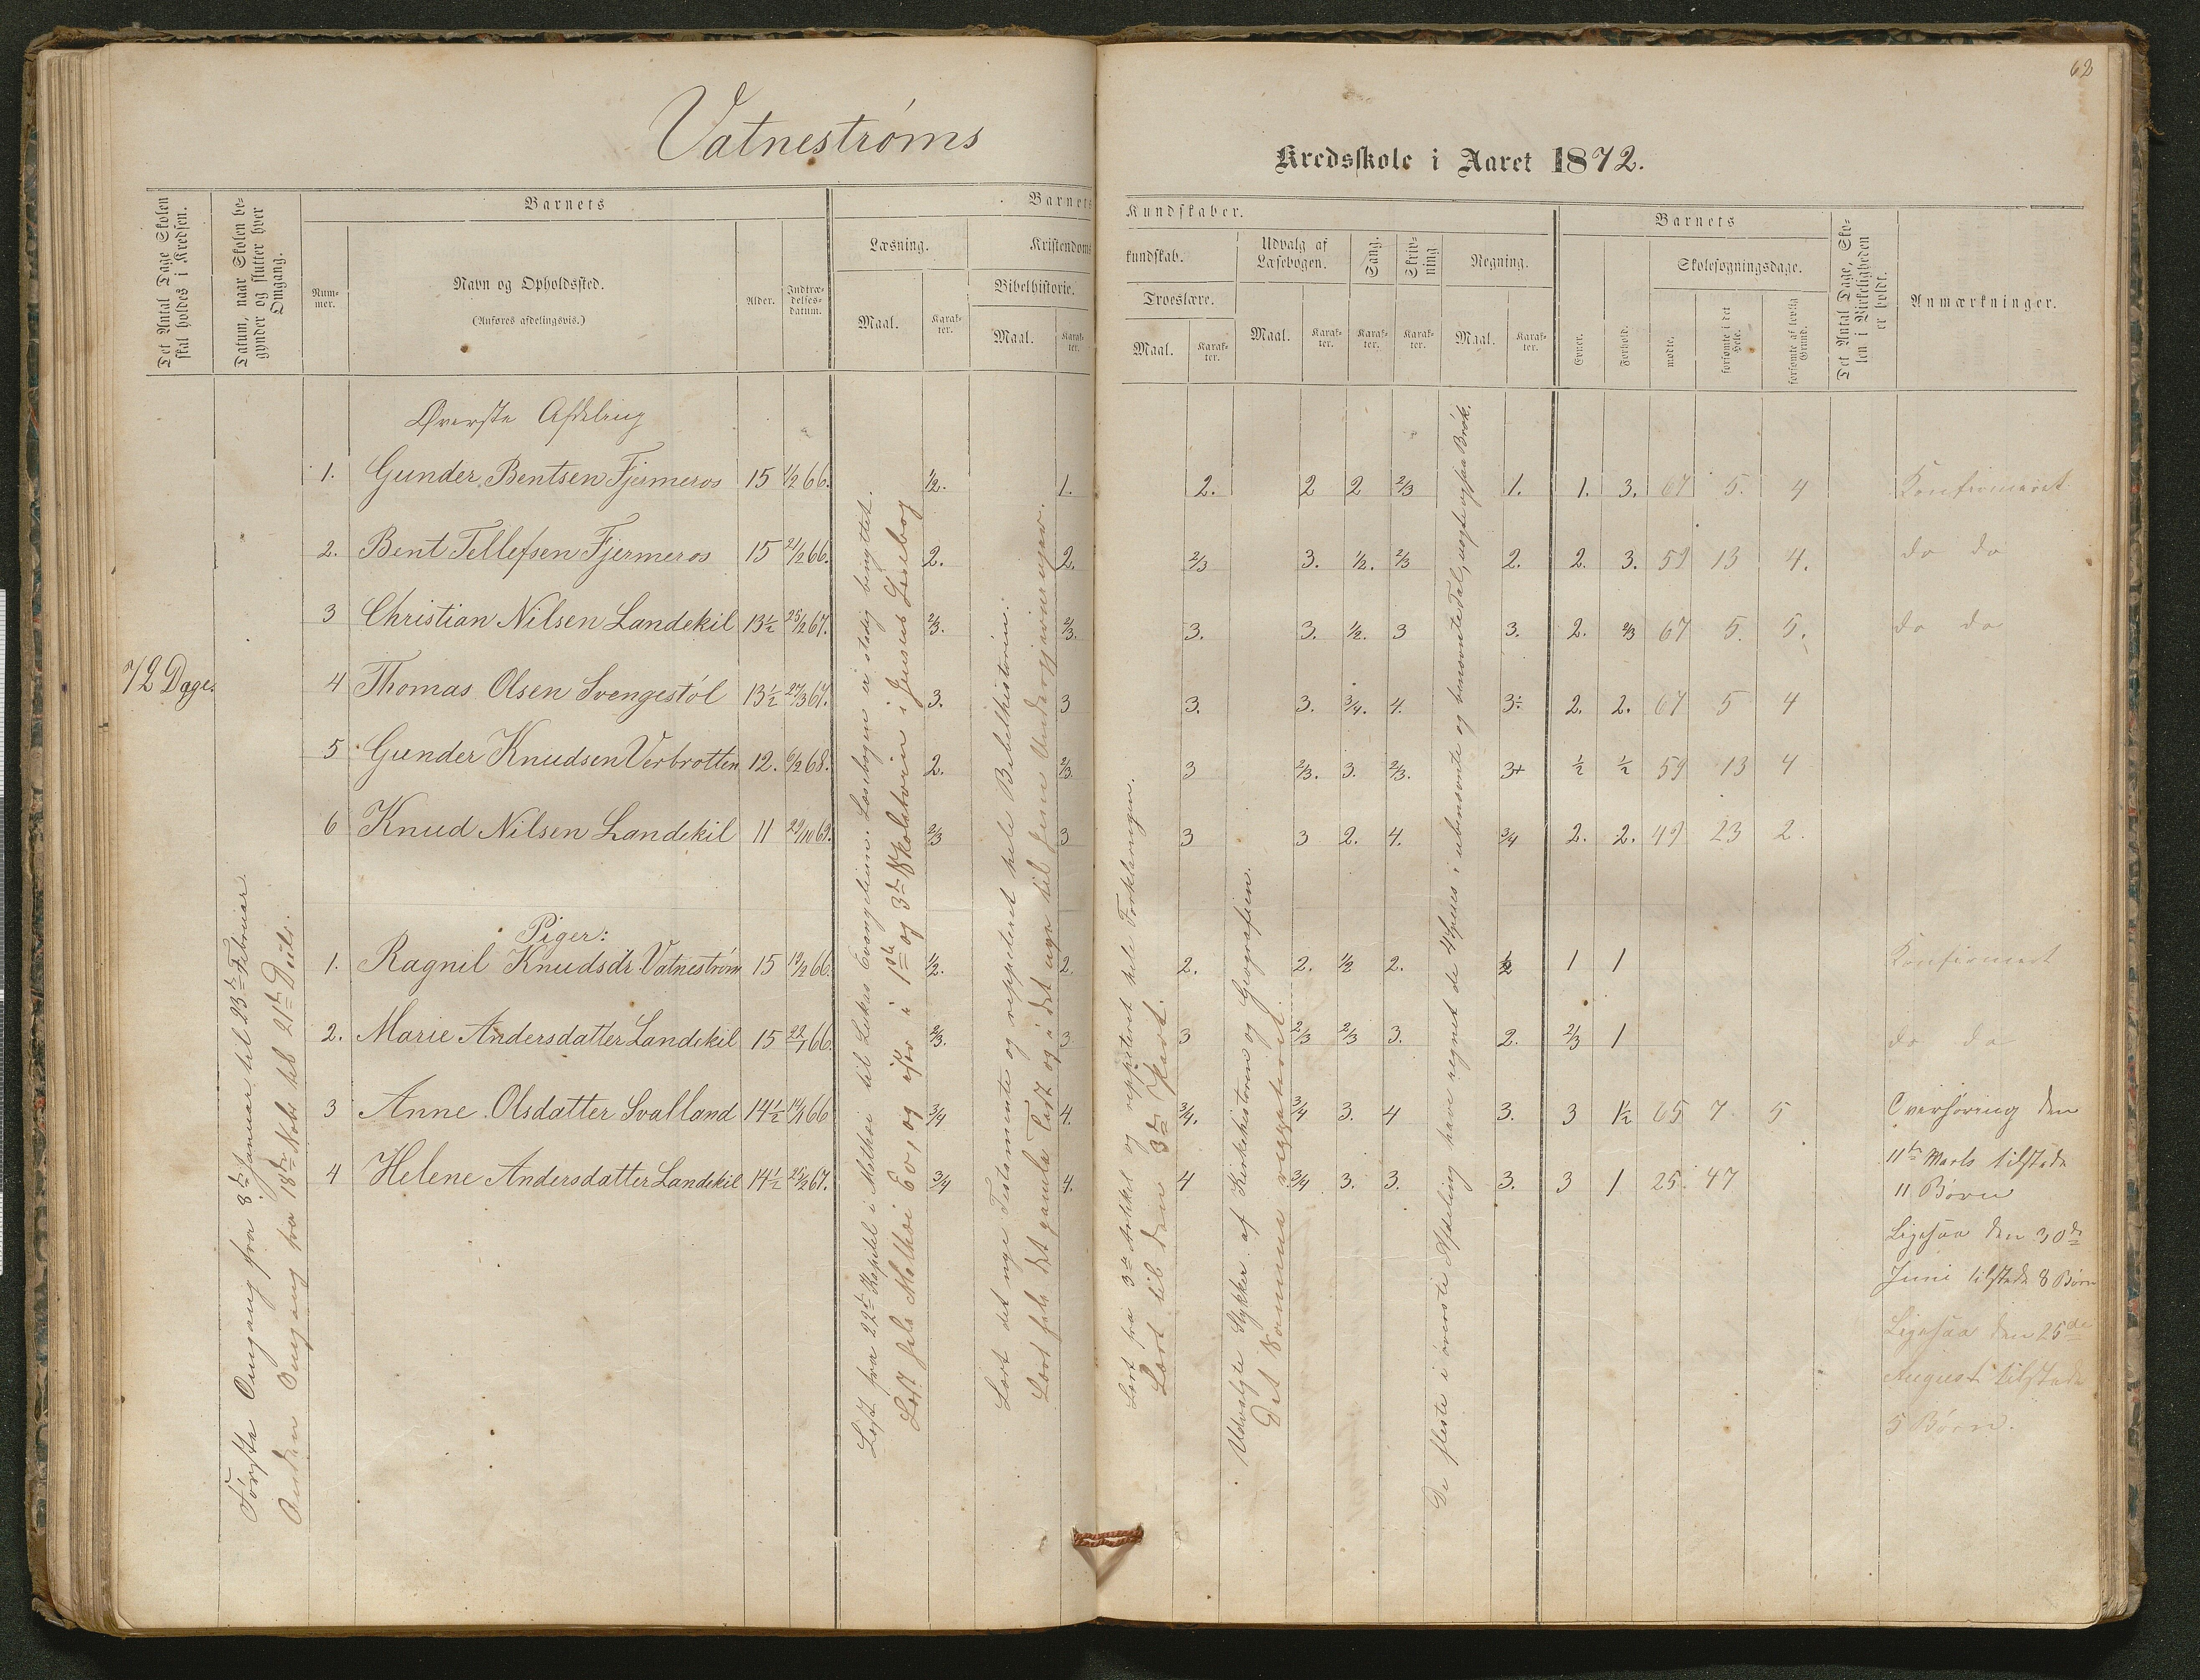 62
Vatnestrøms
Kredsskole i Aaret 1872.
Det Antal Dage Skolen skal holdes i Kredsen.
Datum, naar Skolen begynder og slutter hver Omgang.
Barnets
Nummer.
Navn og Opholdssted.
(Anføres afdelingsvis.)
Alder.
Indtrædelsesdatum.
Barnets
Kundskaber.
Læsning.
Maal.
Karakter.
Kristendoms
kundskab.
Bibelhistorie.
Maal.
Karakter.
Troeslære.
Maal.
Karakter.
Udvalg af Læsebogen.
Maal.
Karakter.
Sang.
Karakter.
Skrivning
Karakter.
Regning.
Maal.
Karakter.
Barnets
Evner.
Forhold.
Skolesøgningsdage.
mødte.
forsømte i det Hele.
forsømte af lovlig Grund.
Det Antal Dage, Skolen i Virkeligheden er holdt.
Anmærkninger.
72 Dage.
Første Omgang fra 8de Januar til 23de Februar.
Anden Omgang fra 18de Novbr til 21de Decbr.
Øverste Afdeling
1. Gunder Bentsen Fjermeros 15 1/2 66. 1/2. 1. 2. 2 2 2/3 1. 1. 3. 67 5. 4 Konfirmeret
2. Bent Tellefsen Fjermeros 15 21/2 66. 2. 2. 2/3 3. 1/2. 2/3 2. 2. 3. 59 13 4. do do
3 Christian Nilsen Landekil 13½ 25/2 67. 2/3. 2/3. 3. 3. 1/2. 3 3. 2. 2/3 67 5. 5. do do
4 Thomas Olsen Svengestøl 13½ 27/3 67. 3. 3 3. 3. 3/4. 4. 3÷ 2. 2. 67 5 4
5 Gunder Knudsen Verbrotten 12. 6/2 68. 2. 2/3 3 2/3. 3. 2/3. 3+ ½ ½ 59 13 4
6 Knud Nilsen Landekil 11 29/10 69. 2/3 3 3 3 2. 4. 3/4 2. 2. 49 23 2.
Piger:
1. Ragnil Knudsdr. Vatnestrøm 15 19/2 66. 1/2. 2. 2. 2. 1/2 2. 1/2 1 1 Konfirmert
2. Marie Andersdatter Landekil 15 22/1 66. 2/3. 3 3 2/3 2/3 3. 2. 2/3 1 do do
3 Anne Olsdatter Svalland 14½ 14/1 66 3/4 4. 3/4. 3/4 3. 4 3. 3 1½ 65 7 5
4 Helene Andersdatter Landekil 14½ 25/2 67. 3/4 4. 4 3/4 3. 3. 3. 3 1 25. 47
Læst fra 22de Kapitel i Mathæi til Lukas Evangelium. Læsebogen er stadig benyttet.
Læst hele Mathæi Ev., og efter i 1ste og 3de Skoletrin i Jensens Læsebog
Lært det nye Testamente og repeteret hele Bibelhistorien.
Lært hele det gamle Test og i det nye til Jesu Undergjerninger.
Lært fra 3de Artikel og repeteret hele Forklaringen.
Lært til den 3de Part.
Udvalgte Stykker af Kirkehistorien og Geografien.
Det Samme repeteret.
De fleste i øverste Afdeling have regnet de 4 Species i ubenævnte og benævnte Tal, nogle ogsaa Brøk.
Overhøring den
11te Marts tilstede
11 Børn
Ligesaa den 30de
Juni tilstede 8 Børn
Ligesaa den 25de
August tilstede
5 Børn.